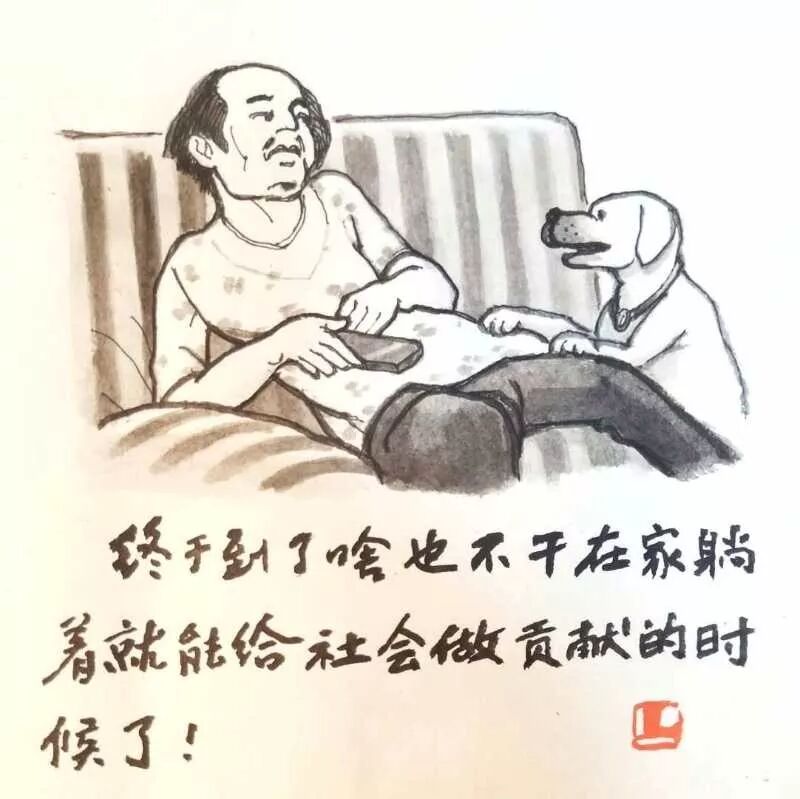 终于到了啥也不干在家躺
着就能给社会做贡献的时
候了!